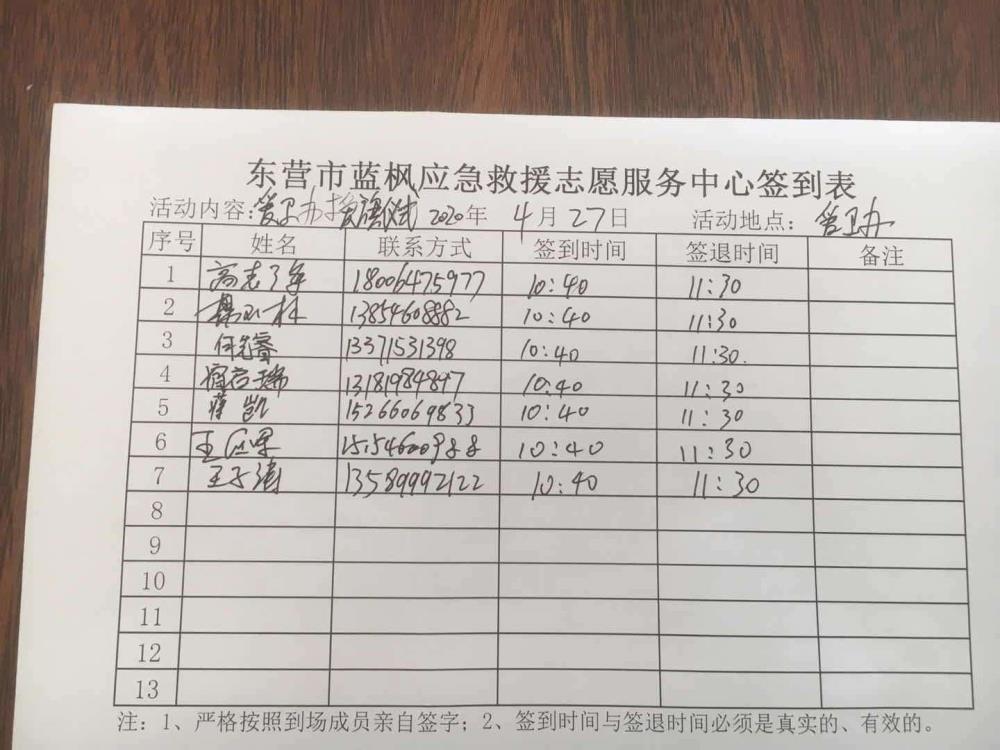 东营市蓝枫应急救援志愿服务中心签到表
活动内容: 2020年 4月27日 活动地点:
序号 姓名 联系方式 签到时间 签退时间 备注
1 18006475977 10:40 11:30
2 13854608882 10:40 11:30
3 13371531398 10:40 11:30.
4 13181984847 10:40 11:30
5 蒋凯 15266069833 10:40 11:30
6 10:40 11:30
7 13589992122 10:40 11:30
8
9
10
11
12
13
注：1、严格按照到场成员亲自签字；2、签到时间与签退时间必须是真实的、有效的。